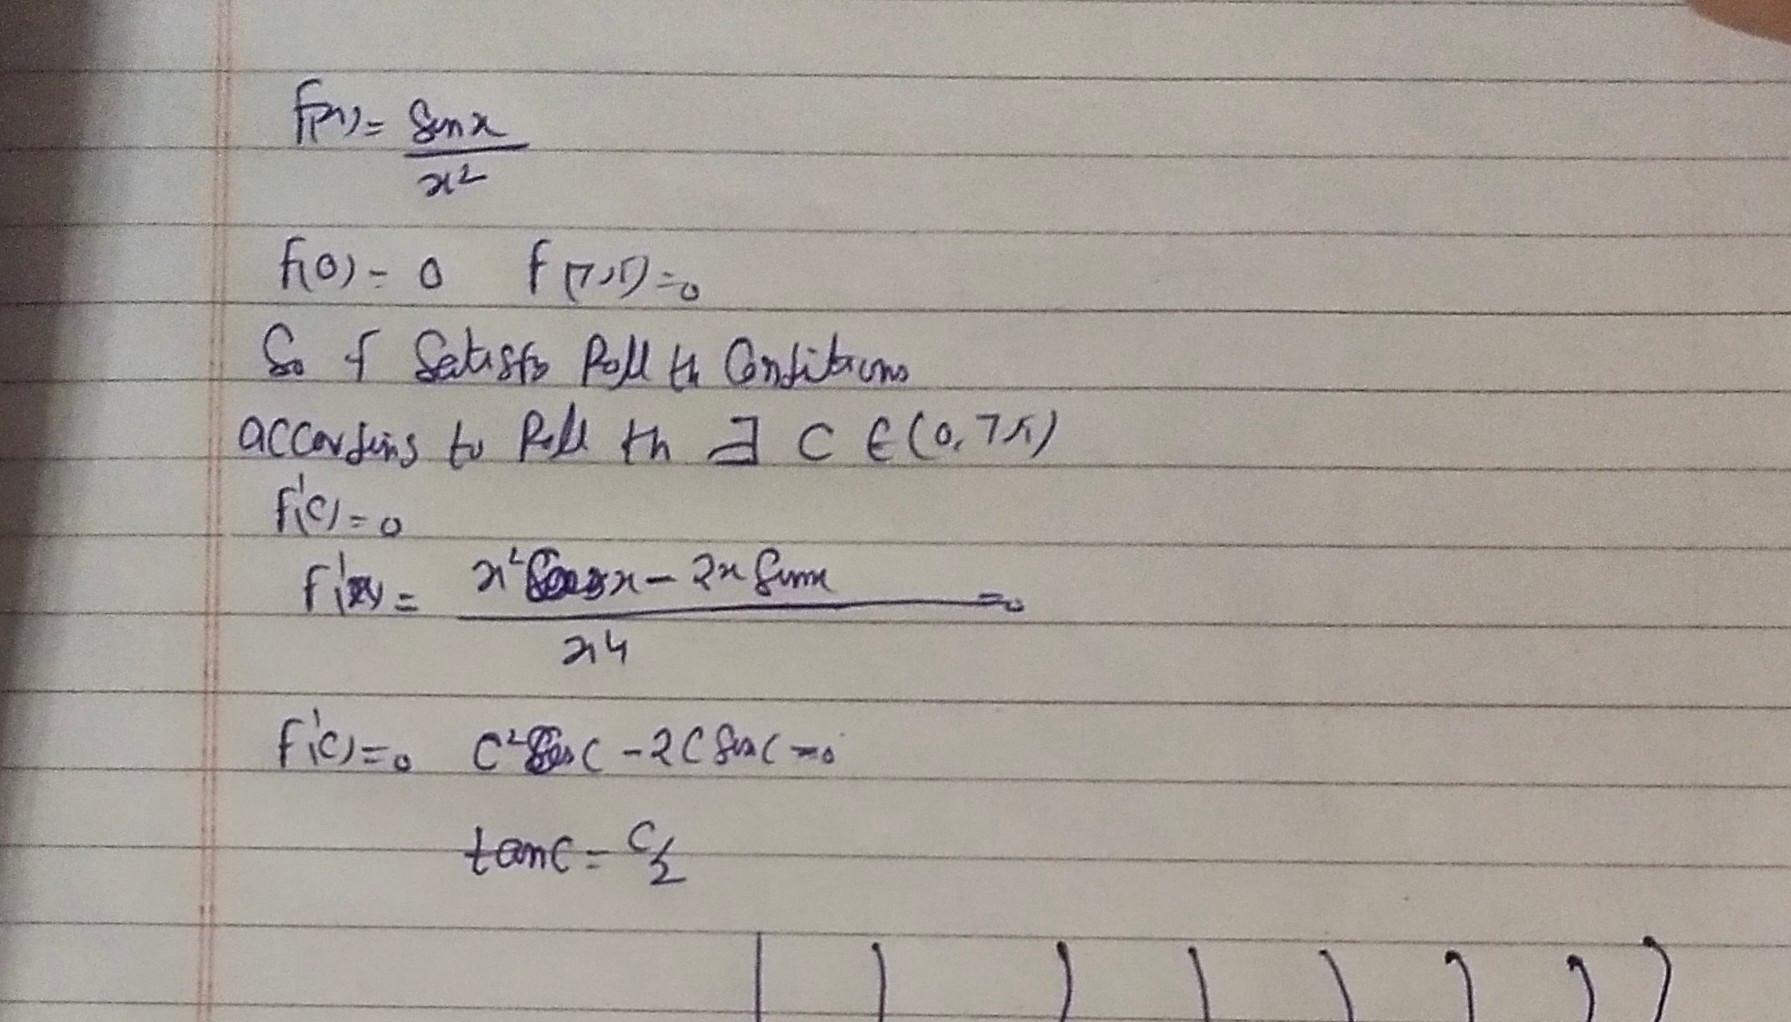 f(x) = sinx
x²
f(0) = 0 f(7π) = 0
So f Satisfs Roll th Conditions
according to Roll th ∃ C ∈ (0, 7π)
f'(c) = 0
f'(x) = x² Cosx - 2x Sinx = 0
x4
f'(c) = 0 C² Cos C - 2C Sin C = 0
tanc = C/2